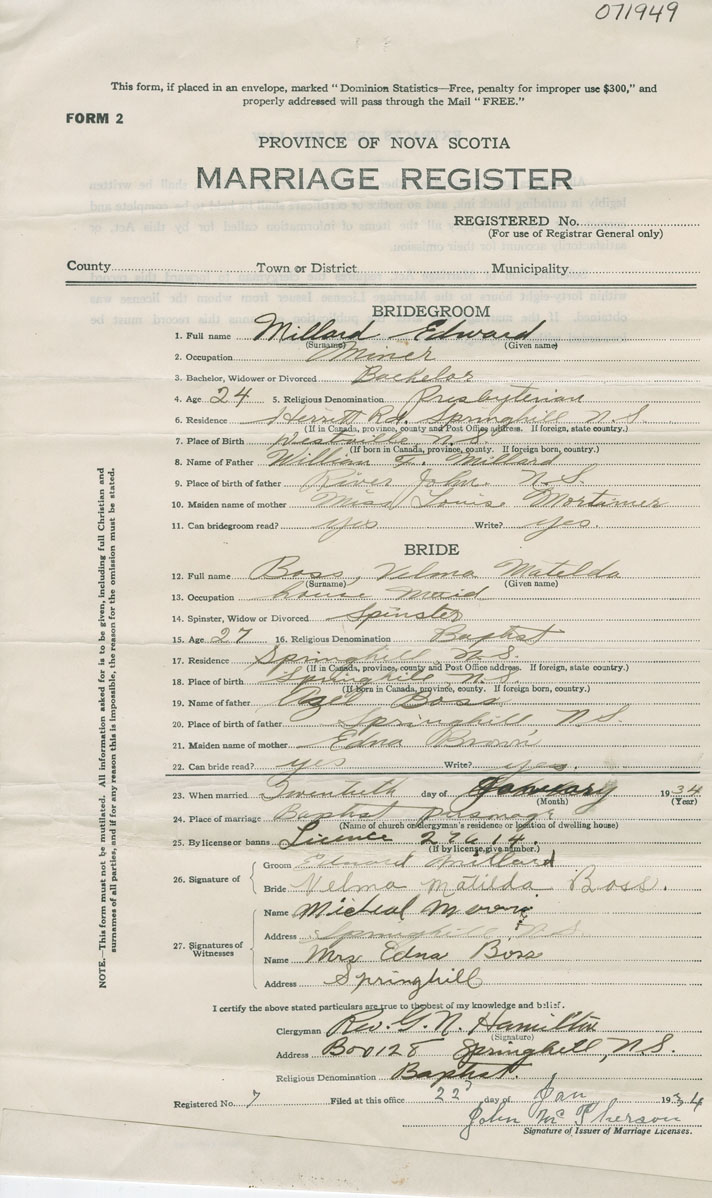 071949
This form, if placed in an envelope, marked "Dominion Statistics—Free, penalty for improper use $300," and
properly addressed will pass through the Mail "FREE."
FORM 2
PROVINCE OF NOVA SCOTIA
MARRIAGE REGISTER
REGISTERED No.
(For use of Registrar General only)
County Town or District Municipality
BRIDEGROOM
1. Full name Millard Edward
(Surname) (Given name)
2. Occupation Miner
3. Bachelor, Widower or Divorced Bachelor
4. Age 24 5. Religious Denomination Presbyterian
6. Residence Herritt Rd. Springhill N.S.
(If in Canada, province, county and Post Office address. If foreign, state country.)
7. Place of Birth Westville N.S.
(If born in Canada, province, county. If foreign born, country.)
8. Name of Father William F. Millard
9. Place of birth of father River John N.S.
10. Maiden name of mother Miss Louise Mortimer
11. Can bridegroom read? yes Write? yes.
BRIDE
12. Full name Boss, Velma Matelda
(Surname) (Given name)
13. Occupation house maid
14. Spinster, Widow or Divorced Spinster
15. Age 27 16. Religious Denomination Baptist
17. Residence Springhill N.S.
(If in Canada, province, county and Post Office address. If foreign, state country.)
18. Place of birth Springhill N.S.
(If born in Canada, province, county. If foreign born, country.)
19. Name of father Azel Boss
20. Place of birth of father Springhill N.S.
21. Maiden name of mother Edna Brown
22. Can bride read? yes Write? yes.
23. When married Twentieth day of January 1934
(Month) (Year)
24. Place of marriage Baptist parsonage
(Name of church or clergyman's residence or location of dwelling house)
25. By license or banns Licence 27614.
(If by license, give number.)
26. Signature of
Groom Edward Millard
Bride Velma Matilda Boss.
27. Signatures of Witnesses
Name Micheal
Address Springhill N.S.
Name Mrs Edna Boss
Address Springhill
I certify the above stated particulars are true to the best of my knowledge and belief.
Clergyman Rev. G. N. Hamilton
(Signature)
Address Box 128 Springhill, N.S.
Religious Denomination Baptist.
Registered No. 7 Filed at this office 22 day of Jan 1934
John McPherson
Signature of Issuer of Marriage Licenses.
NOTE.—This form must not be mutilated. All information asked for is to be given, including full Christian and
surnames of all parties, and if for any reason this is impossible, the reason for the omission must be stated.